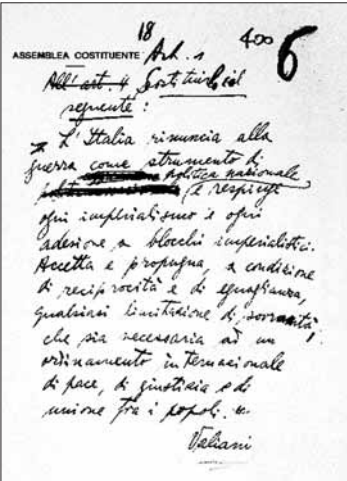 18
400 6
ASSEMBLEA COSTITUENTE Art. 1
All'art. 4 Sostituire il
seguente:
"L'Italia rinuncia alla
guerra come strumento di
politica nazionale
e respinge
ogni imperialismo e ogni
adesione a blocchi imperialistici.
Accetta e propugna, a condizione
di reciprocità e di eguaglianza,
qualsiasi limitazione di sovranità,
che sia necessaria ad un
ordinamento internazionale
di pace, di giustizia e di
unione fra i popoli."
Valiani